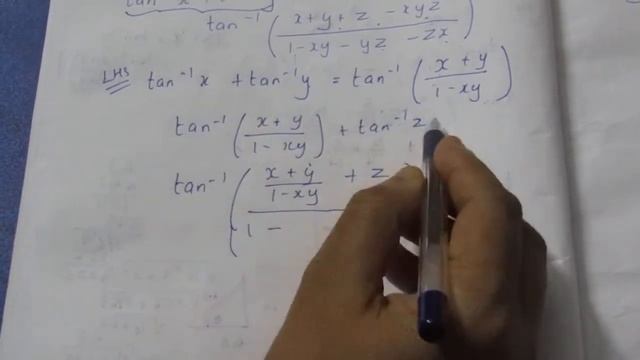 tan⁻¹ x
tan⁻¹ ( (x + y + z - xyz) / (1 - xy - yz - zx) )
LHS tan⁻¹x + tan⁻¹y = tan⁻¹ ( (x + y) / (1 - xy) )
tan⁻¹ ( (x + y) / (1 - xy) ) + tan⁻¹ z
tan⁻¹ ( ( (x + y) / (1 - xy) + z ) / (1 -